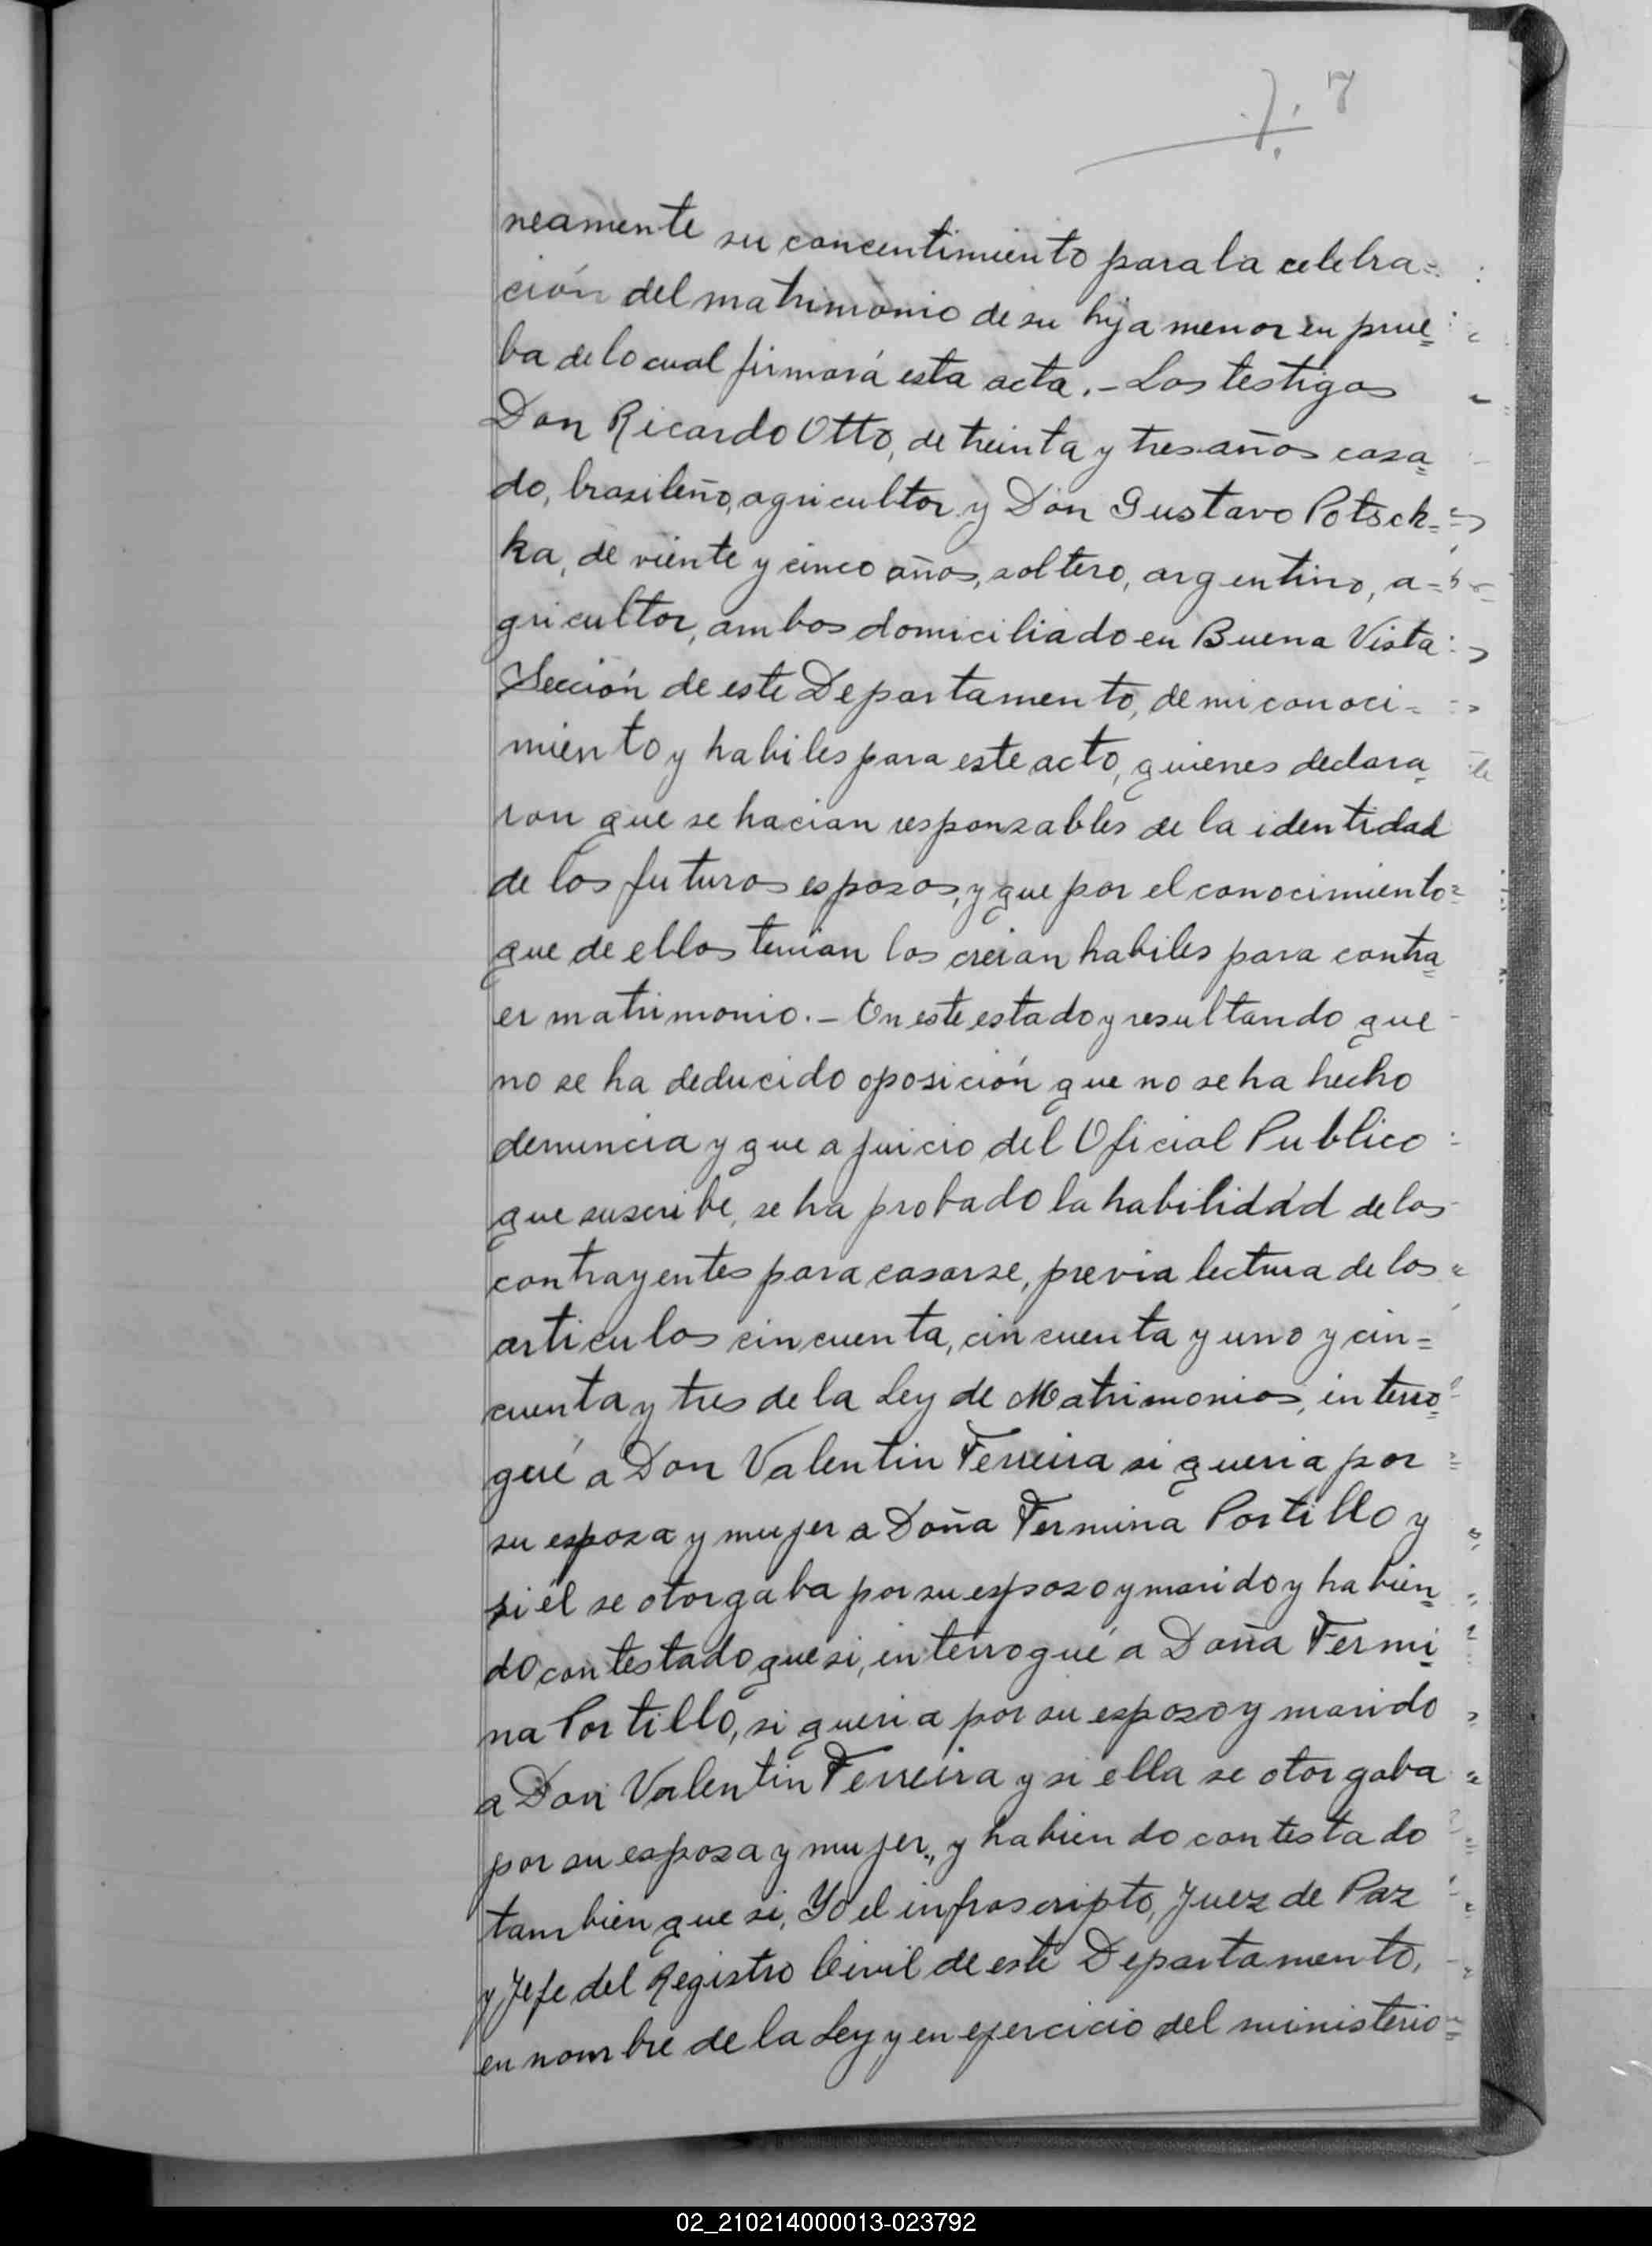 7
neamente su concentimiento para la celebra=
ción del matrimonio de su hija menor en prue=
ba de lo cual firmará esta acta.- Los testigos
Don Ricardo Otto, de treinta y tres años casa=
do, brasileño, agricultor y Don Gustavo Potsch=
ka, de viente y cinco años, soltero, argentino, a=
gricultor, ambos domiciliado en Buena Vista
Sección de este Departamento, de mi conoci=
miento y habiles para este acto, quienes declara=
ron que se hacian responsables de la identidad
de los futuros esposos, y que por el conocimiento
que de ellos tenian los creian habiles para contra=
er matrimonio.- En este estado y resultando que
no se ha deducido oposición que no se ha hecho
denuncia y que a juicio del Oficial Publico
que suscribe, se ha probado la habilidad de los
contrayentes para casarse, previa lectura de los
articulos cincuenta, cincuenta y uno y cin=
cuenta y tres de la Ley de Matrimonios, interro=
gué a Don Valentin Ferreira si queria por
su esposa y mujer a Doña Fermina Portillo y
si él se otorgaba por su esposo y marido y habien=
do contestado que si, interrogué a Doña Fermi=
na Portillo, si queria por su esposo y marido
a Don Valentin Ferreira y si ella se otorgaba
por su esposa y mujer, y habiendo contestado
tambien que si, Yo el infrascripto, Juez de Paz
y Jefe del Registro Civil de este Departamento,
en nombre de la Ley y en ejercicio del ministerio
02_210214000013-023792